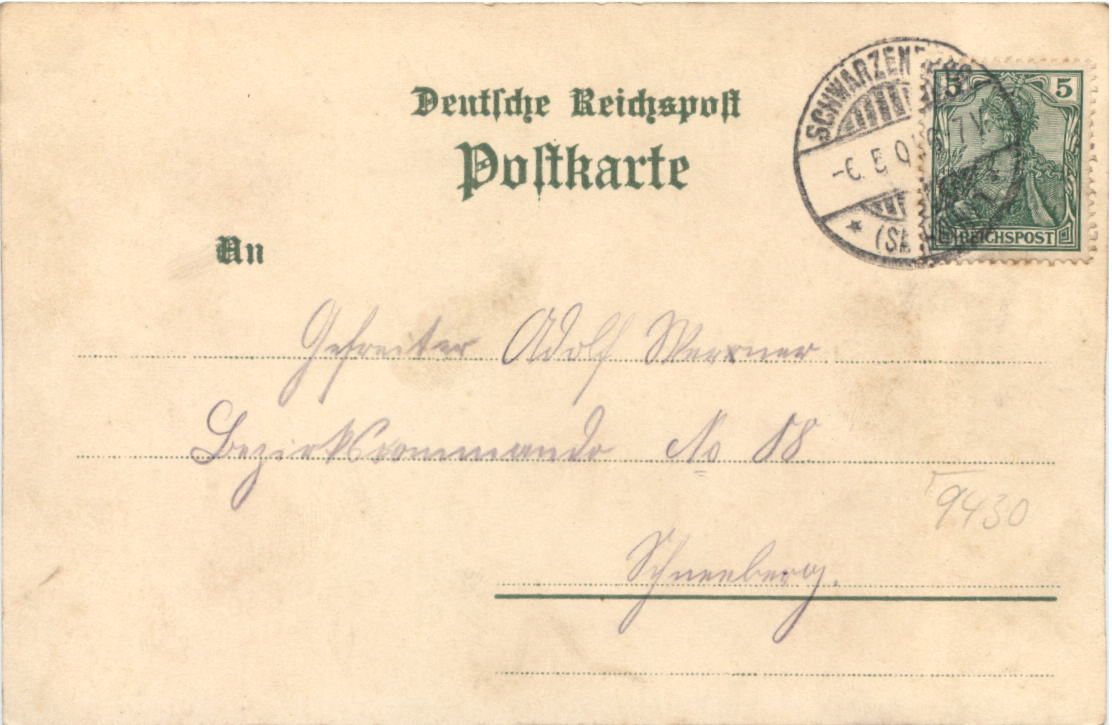 Deutsche Reichspost
Postkarte
An
SCHWARZENBERG
-6.5.0 7V.
5 5
REICHSPOST
Gefreiter Adolf Werner
Bezirkskommando No 88.
9430
Schneeberg.